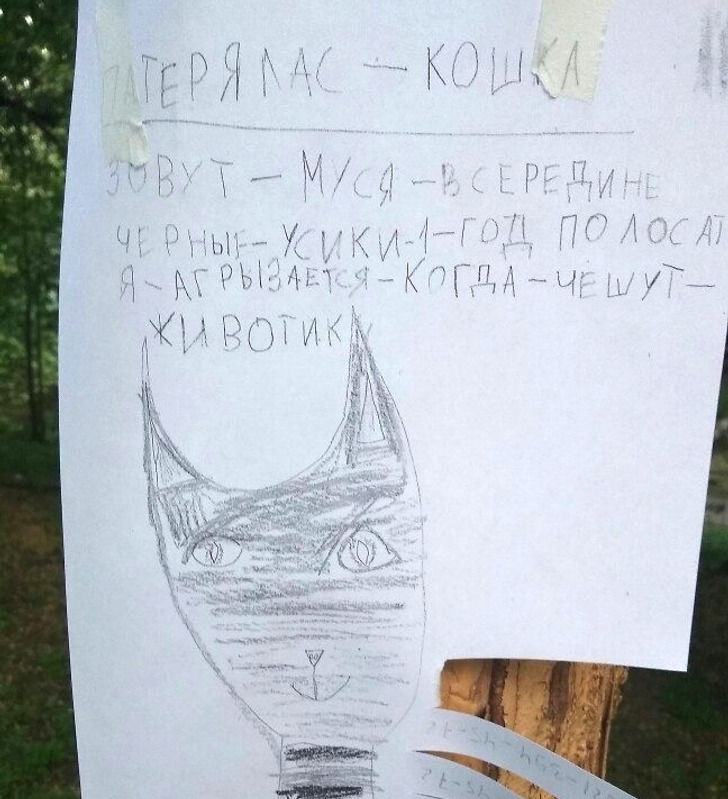 ПАТЕРЯЛАС — КОШКА
ЗОВУТ — МУСЯ — В СЕРЕДИНЕ
ЧЕРНЫЕ — УСИКИ - 1 — ГОД ПОЛОСАТ
Я - АГРЫЗАЕТСЯ - КОГДА - ЧЕШУТ -
ЖИВОТИК